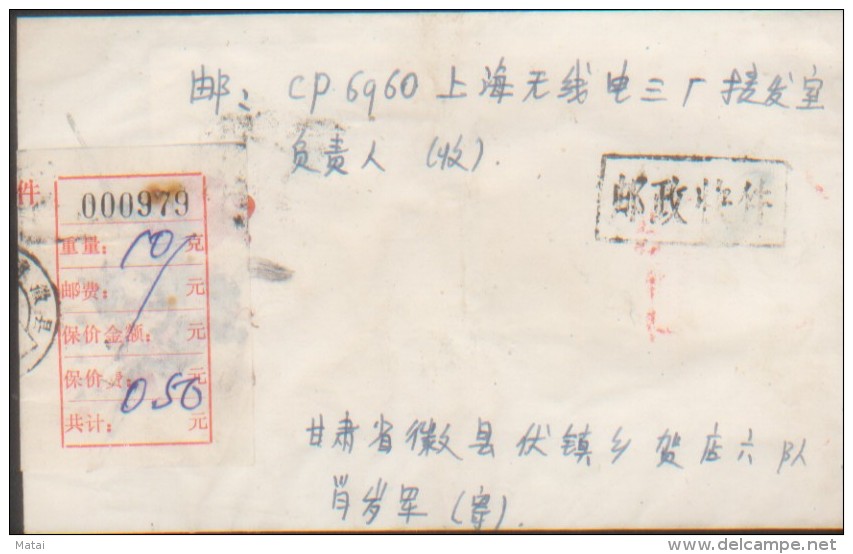 邮: CP6960上海无线电三厂接发室
负责人 (收).
邮政
件
000979
重量: 10 克
邮费: 元
保价金额: 元
保价费: 元
0.50
共计: 元
徽县
甘肃省徽县伏镇乡贺店六队
肖岁军 (寄).
Matai
www.delcampe.net